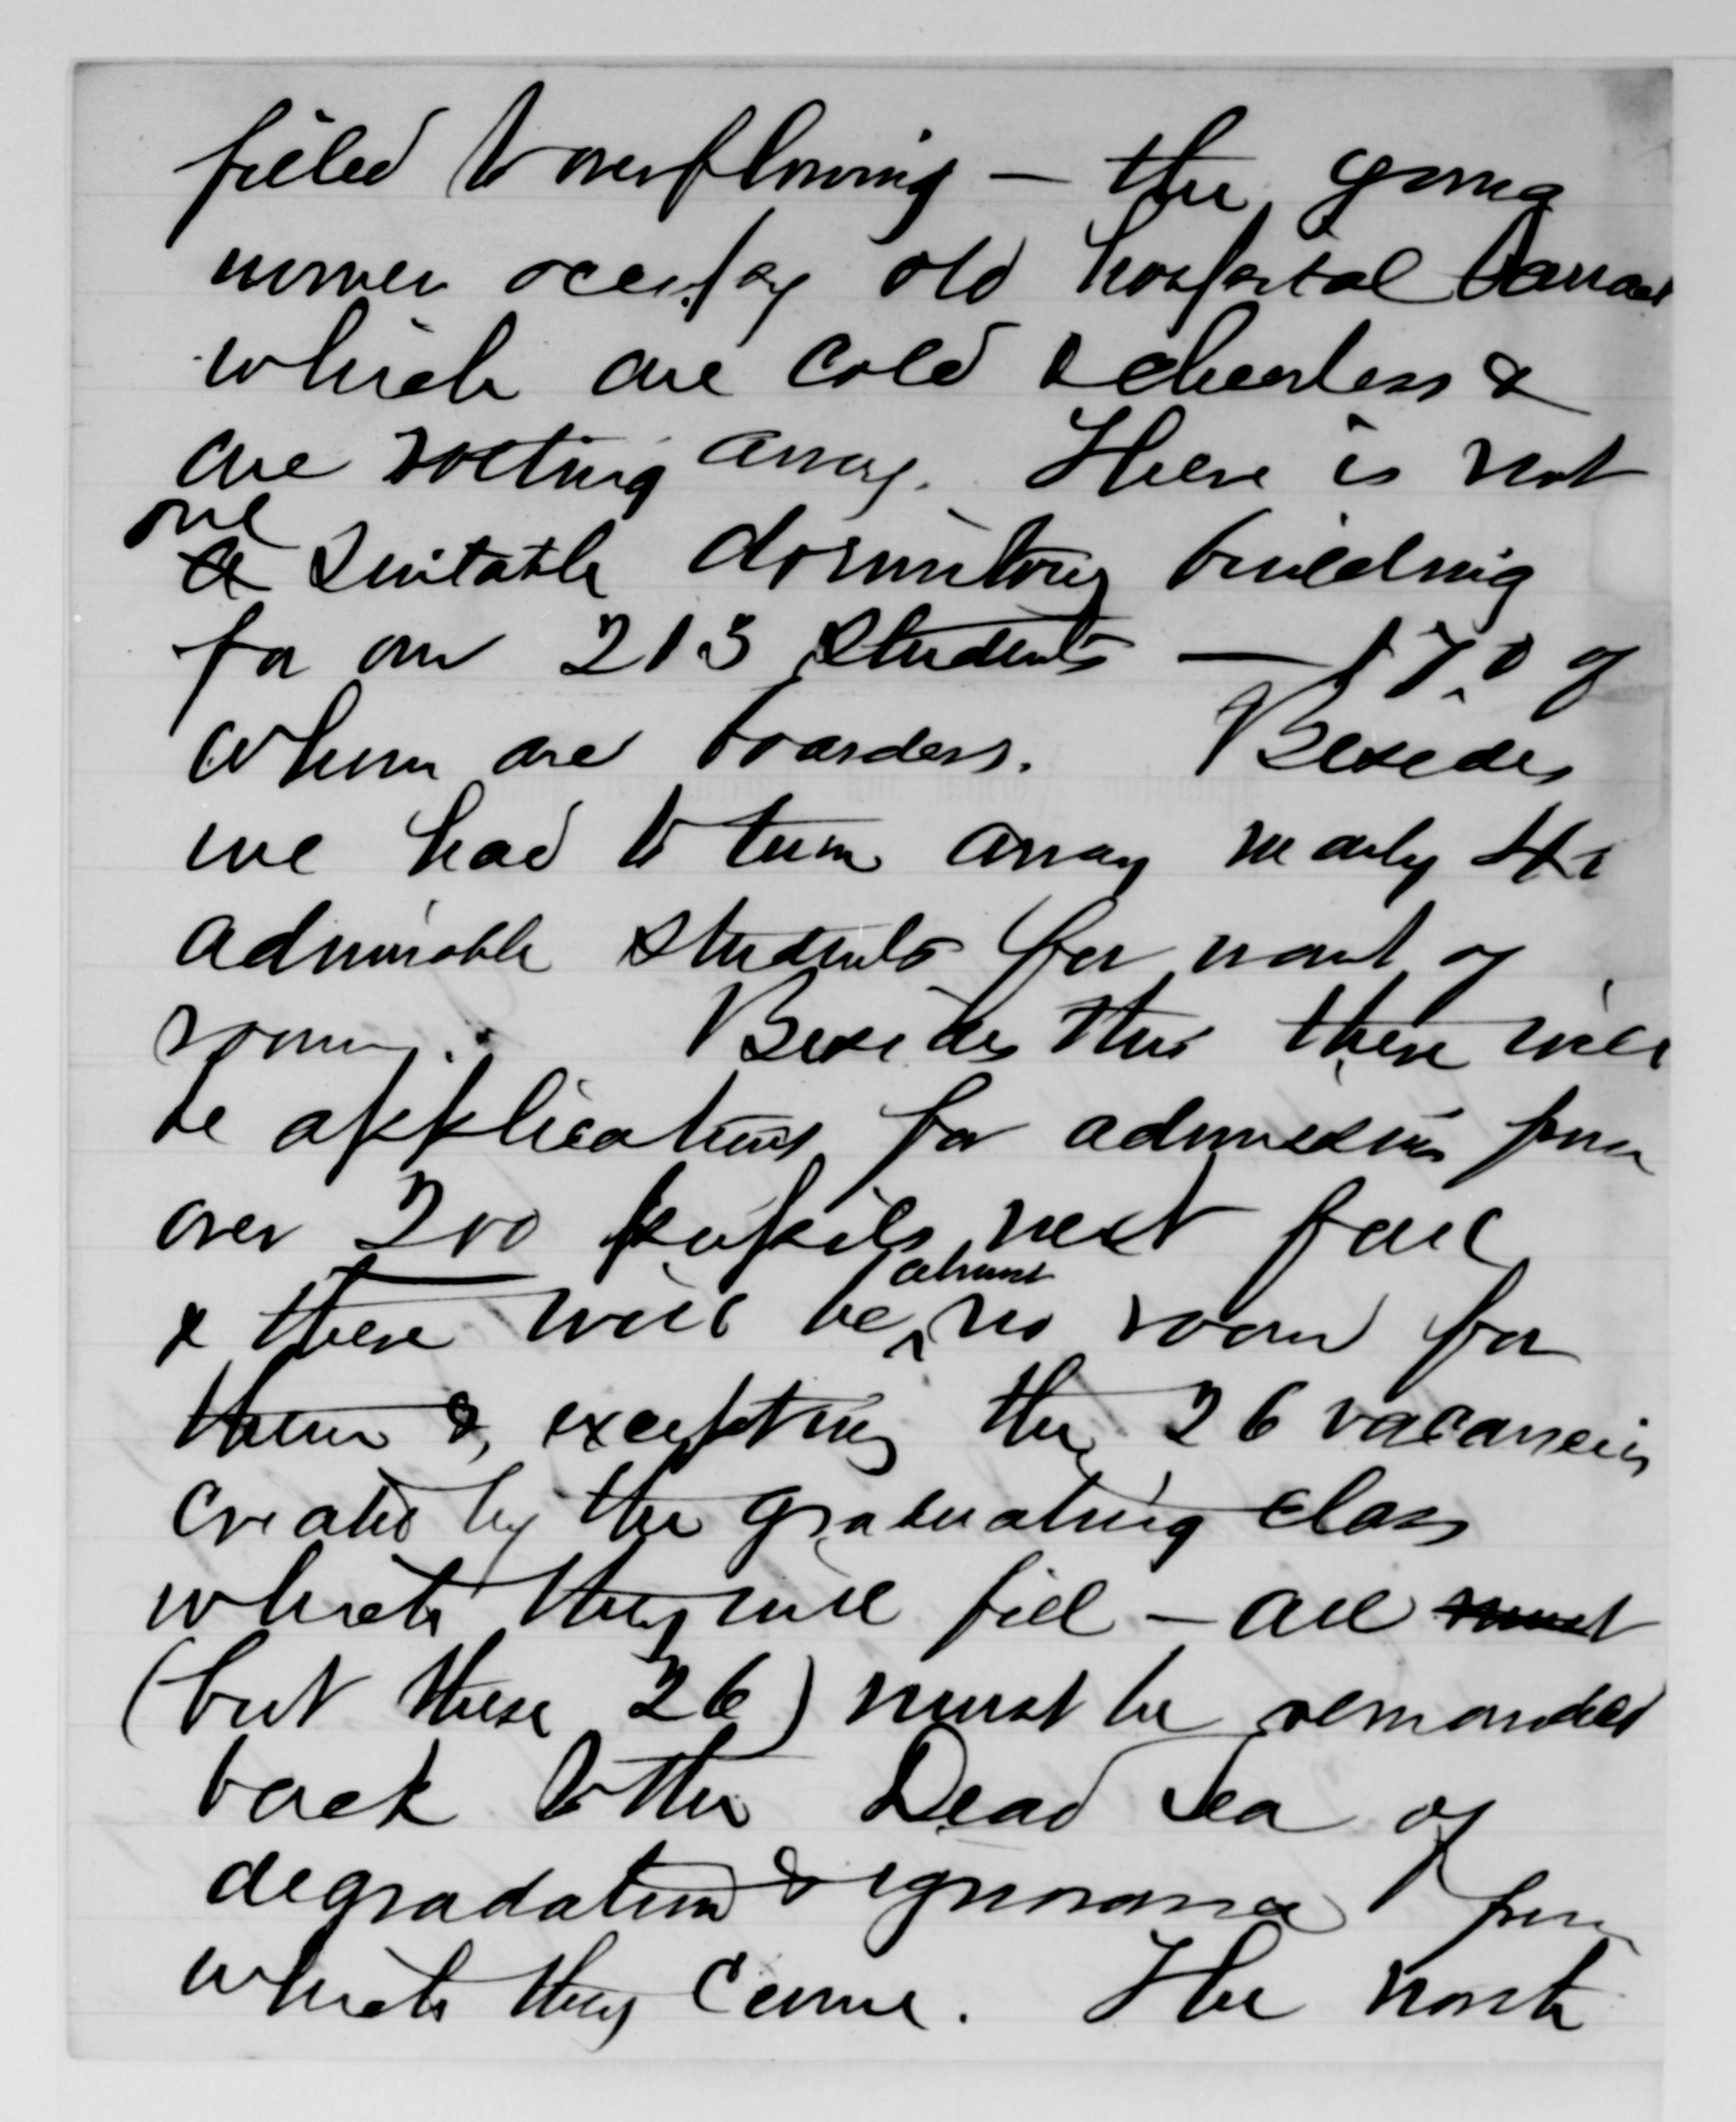 filled to overflowing — the young
women occupy old hospital barracks
which are cold & cheerless &
are rotting away. There is not
one
a suitable dormitory building
for our 213 students — 170 of
whom are boarders. Besides
we had to turn away nearly
admirable students for want of
room. Besides this there will
be applications for admission from
over 200 pupils next fall
almost
& there will be no room for
them &, excepting the 26 vacancies
created by the graduating class
which they will fill — all must
(but these 26) must be remanded
back to the Dead Sea of
degradation & ignorance from
which they came. The work